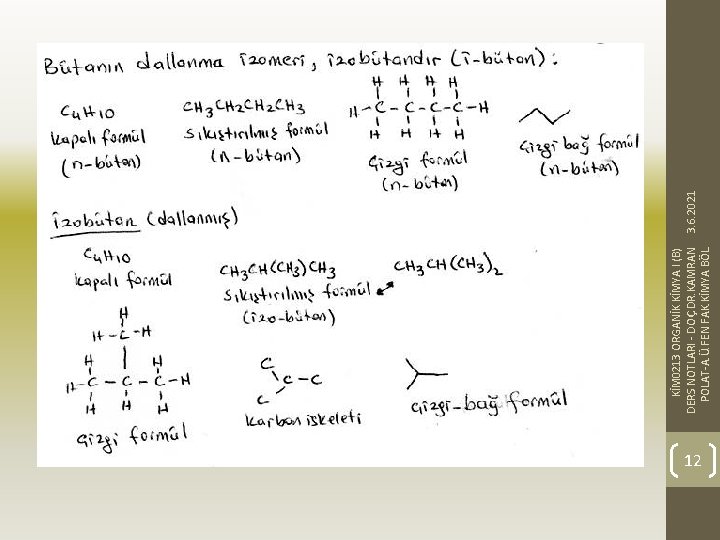 Bütanın dallanma izomeri, izobütandır (i-bütan):
C4H10
kapalı formül
(n-bütan)
CH3CH2CH2CH3
sıkıştırılmış formül
(n-bütan)
H H H H
H-C-C-C-C-H
H H H H
Çizgi formül
(n-bütan)
Çizgi bağ formül
(n-bütan)
izobütan (dallanmış)
C4H10
kapalı formül
CH3CH(CH3)CH3
sıkıştırılmış formül
(izo-bütan)
CH3CH(CH3)2
H
H-C-H
H H
H-C-C-C-H
H H H
Çizgi formül
C
C-C
C
Karbon iskeleti
Çizgi-bağ formül
KİM0213 ORGANİK KİMYA I (B)
DERS NOTLARI - DOÇ.DR.KAMRAN
POLAT-A.Ü.FEN FAK KİMYA BÖL
3.6.2021
12